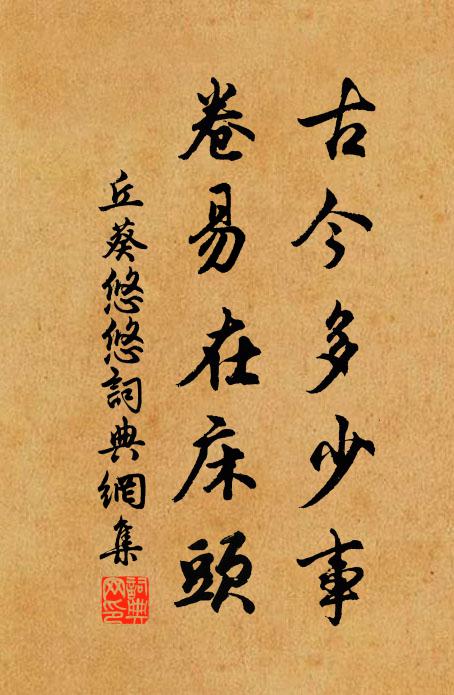 古今多少事
卷易在床頭
丘葵悠悠詞典網集
詞典
網印